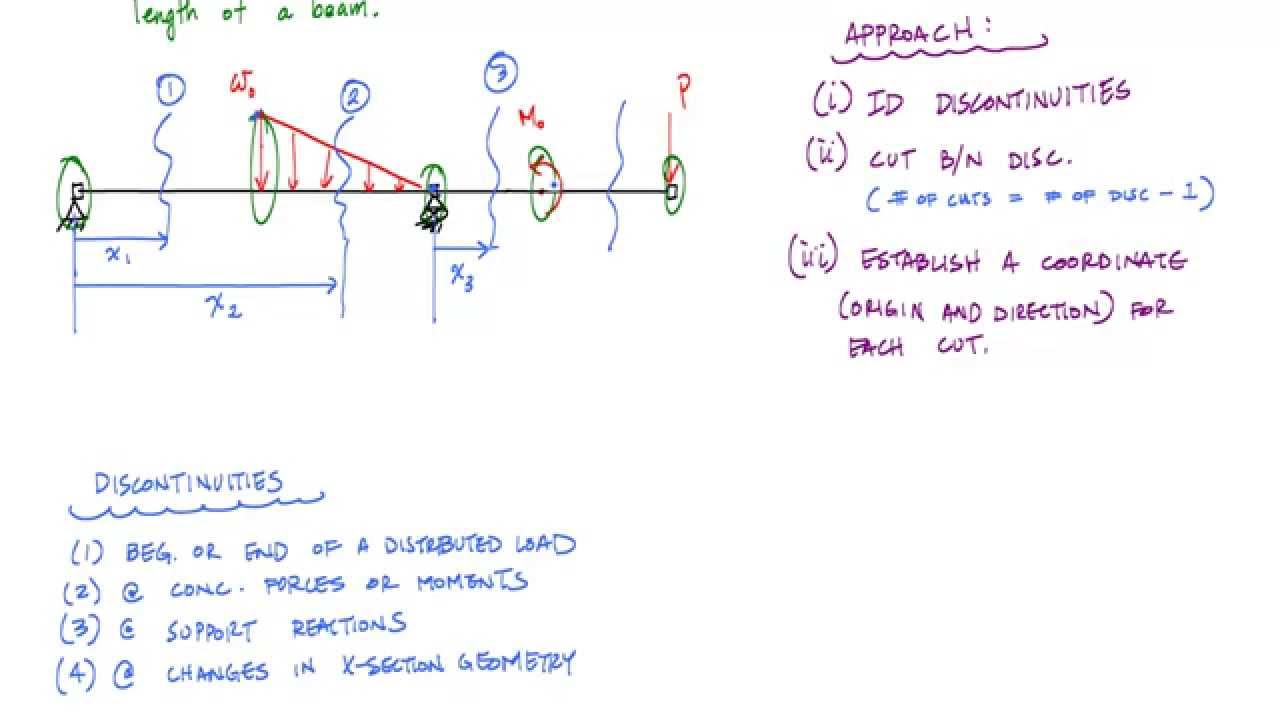 length of a beam.
1
W₀
2
3
M₀
P
x₁
x₂
x₃
APPROACH:
(i) ID DISCONTINUITIES
(ii) CUT B/N DISC.
(# OF CUTS = # OF DISC - 1)
(iii) ESTABLISH A COORDINATE
(ORIGIN AND DIRECTION) FOR
EACH CUT.
DISCONTINUITIES
(1) BEG. OR END OF A DISTRBUTED LOAD
(2) @ CONC. FORCES OR MOMENTS
(3) @ SUPPORT REACTIONS
(4) @ CHANGES IN X-SECTION GEOMETRY